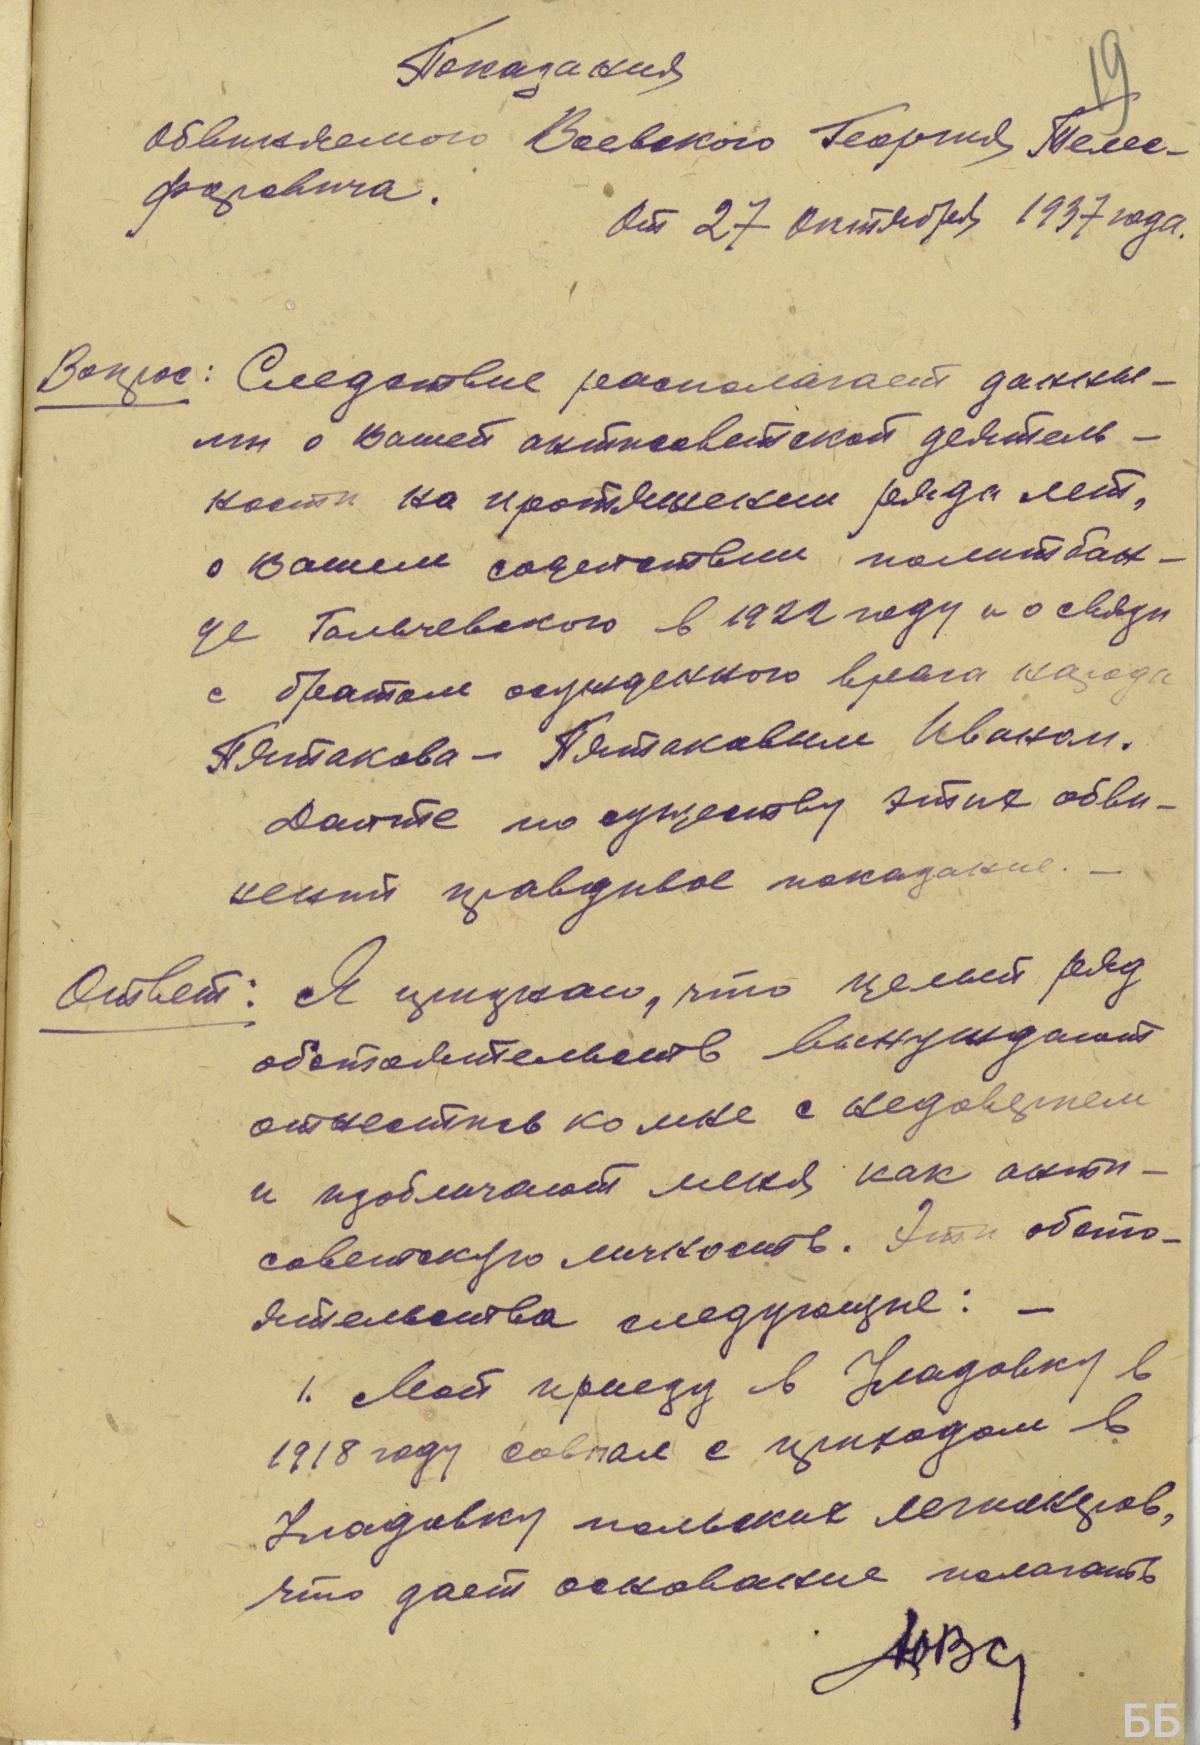 19
Показания
обвиняемого Воевского Георгия Телес-
форовича.
от 27 октября 1937 года.
Вопрос: Следствие располагает данны-
ми о вашей антисоветской деятель-
ности на протяжении ряда лет,
о вашем содействии политбан-
де Гальчевского в 1922 году и о связи
с братом осужденного врага народа
Пятакова – Пятаковым Иваном.
Дайте по существу этих обви-
нений правдивое показание. –
Ответ: Я признаю, что целый ряд
обстоятельств вынуждают
отнестись ко мне с недоверием
и изобличают меня как анти-
советскую личность. Эти обсто-
ятельства следующие: –
1. Мой приезд в Уладовку в
1918 году совпал с приходом в
Уладовку польских легионеров,
что дает основание полагать
ББ